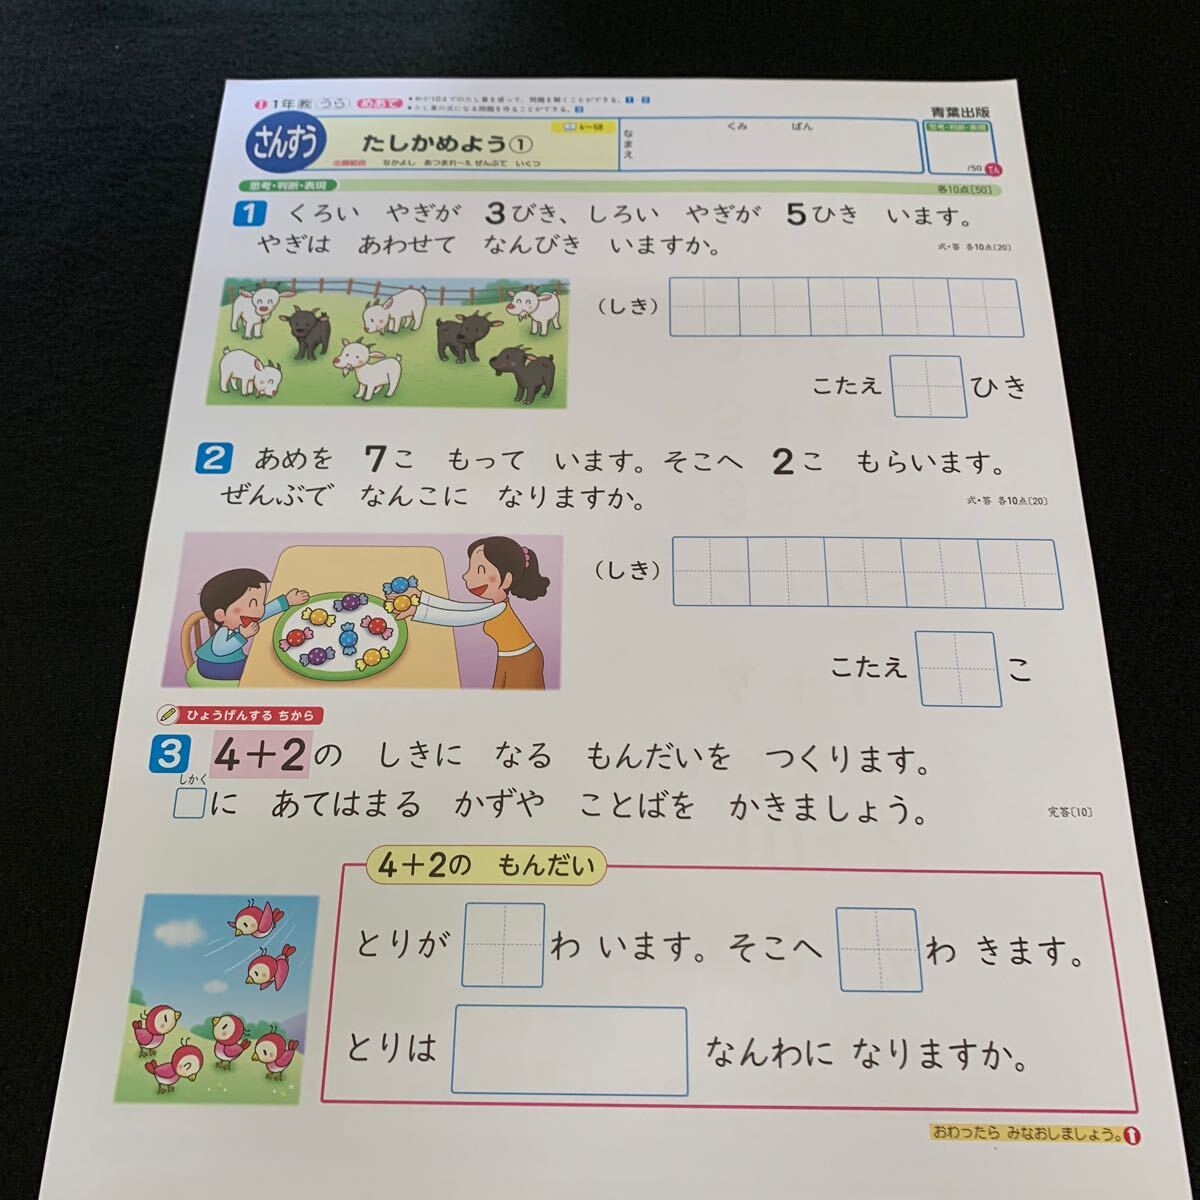 1 1年 教 うら めあて ●和が10までのたし算を使って、問題を解くことができる。1 2
●たし算の式になる問題を作ることができる。3
青葉出版
さんすう たしかめよう① 4〜58
出題範囲 なかよし あつまれ〜5. ぜんぶで いくつ
なまえ くみ ばん
思考・判断・表現
/50 てん
思考・判断・表現 各10点[50]
1 くろい やぎが 3びき、しろい やぎが 5ひき います。
やぎは あわせて なんびき いますか。 式・答 各10点[20]
(しき)
こたえ ひき
2 あめを 7こ もって います。そこへ 2こ もらいます。
ぜんぶで なんこに なりますか。 式・答 各10点[20]
(しき)
こたえ こ
ひょうげんする ちから
3 4+2の しきに なる もんだいを つくります。
しかく
□に あてはまる かずや ことばを かきましょう。 完答[10]
4+2の もんだい
とりが わ います。そこへ わ きます。
とりは なんわに なりますか。
おわったら みなおしましょう。1